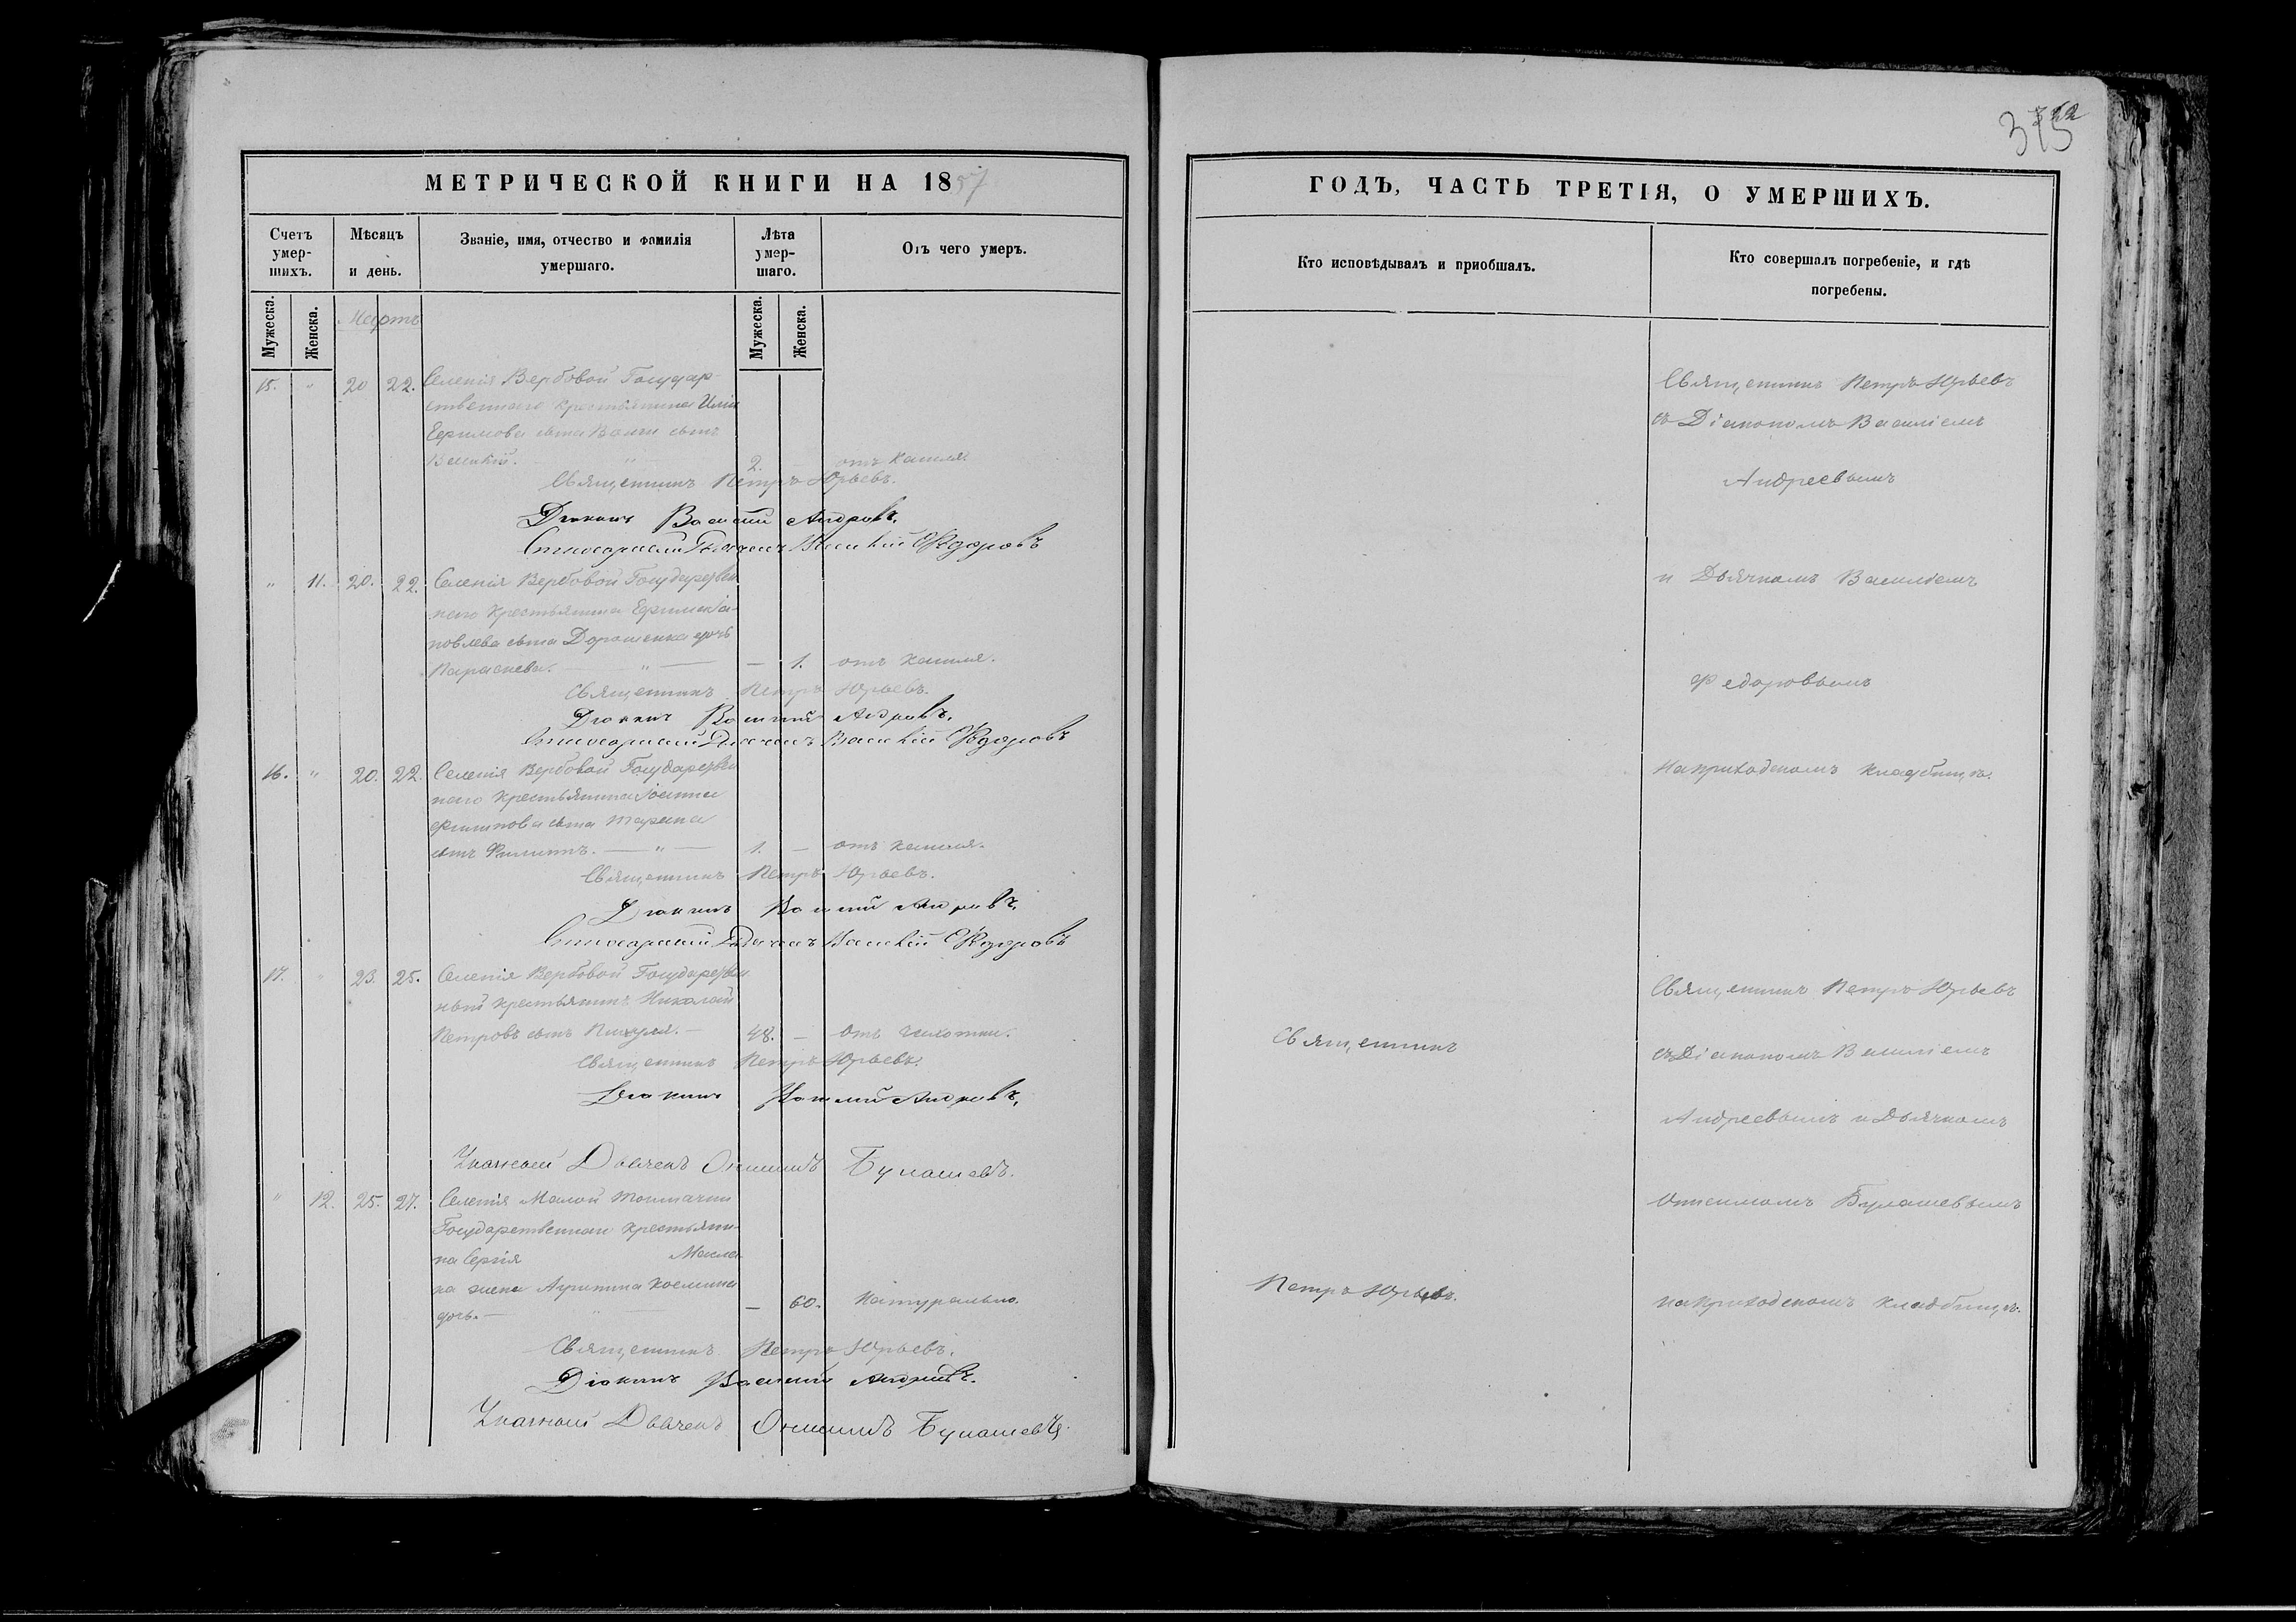 375
МЕТРИЧЕСКОЙ КНИГИ НА 1857
Счетъ умер-шихъ.
Мѣсяцъ и день.
Званіе, имя, отчество и фамилія умершаго.
Лѣта умер-шаго.
Отъ чего умеръ.
Мужеска.
Женска.
Мартъ
Мужеска.
Женска.
15. " 20 22. Селенія Вербовой Государ-
ственнаго крестьянина Иліи
Ефимова сына сынъ
Василій. " 2. отъ кашля.
Священникъ Петръ Юрьевъ.
Діаконъ Василій Андреевъ.
Дьячекъ Василій Ѳедоровъ
" 11. 20. 22. Селенія Вербовой Государствен
наго крестьянина Ефима Іа-
ковлева сына Дорошенка дочь
Параскева. — " — — 1. отъ кашля.
Священникъ Петръ Юрьевъ.
Діаконъ Василій Андреевъ.
Дьячекъ Василій Ѳедоровъ
16. " 20. 22. Селенія Вербовой Государствен
наго крестьянина Іоанна
Филиппова сына
сынъ Филиппъ. — " — 1. — отъ кашля.
Священникъ Петръ Юрьевъ.
Діаконъ Василій Андреевъ.
Дьячекъ Василій Ѳедоровъ
17. " 23. 25. Селенія Вербовой Государствен
ный крестьянинъ Николай
Петровъ сынъ — 48. — отъ чахотки.
Священникъ Петръ Юрьевъ.
Діаконъ Василій Андреевъ.
Указный Дьячекъ Онисимъ Булашевъ.
" 12. 25. 27. Селенія Малой Токмачки
Государственнаго крестьяни-
на Сергія
ка жена Агрипина Космина
дочь. — " — 60. Натурально.
Священникъ Петръ Юрьевъ.
Діаконъ Василій Андреевъ.
Указный Дьячекъ Онисимъ Булашевъ
ГОДЪ, ЧАСТЬ ТРЕТІЯ, О УМЕРШИХЪ.
Кто исповѣдывалъ и пріобщалъ.
Кто совершалъ погребеніе, и гдѣ погребены.
Священникъ Петръ Юрьевъ
съ Діакономъ Василіемъ
Андреевымъ
и Дьячкомъ Василіемъ
Федоровымъ
На приходскомъ кладбищѣ.
Священникъ
Петръ Юрьевъ.
Священникъ Петръ Юрьевъ
съ Діакономъ Василіемъ
Андреевымъ и Дьячкомъ
Онисимомъ Булашевымъ
на приходскомъ кладбищѣ.